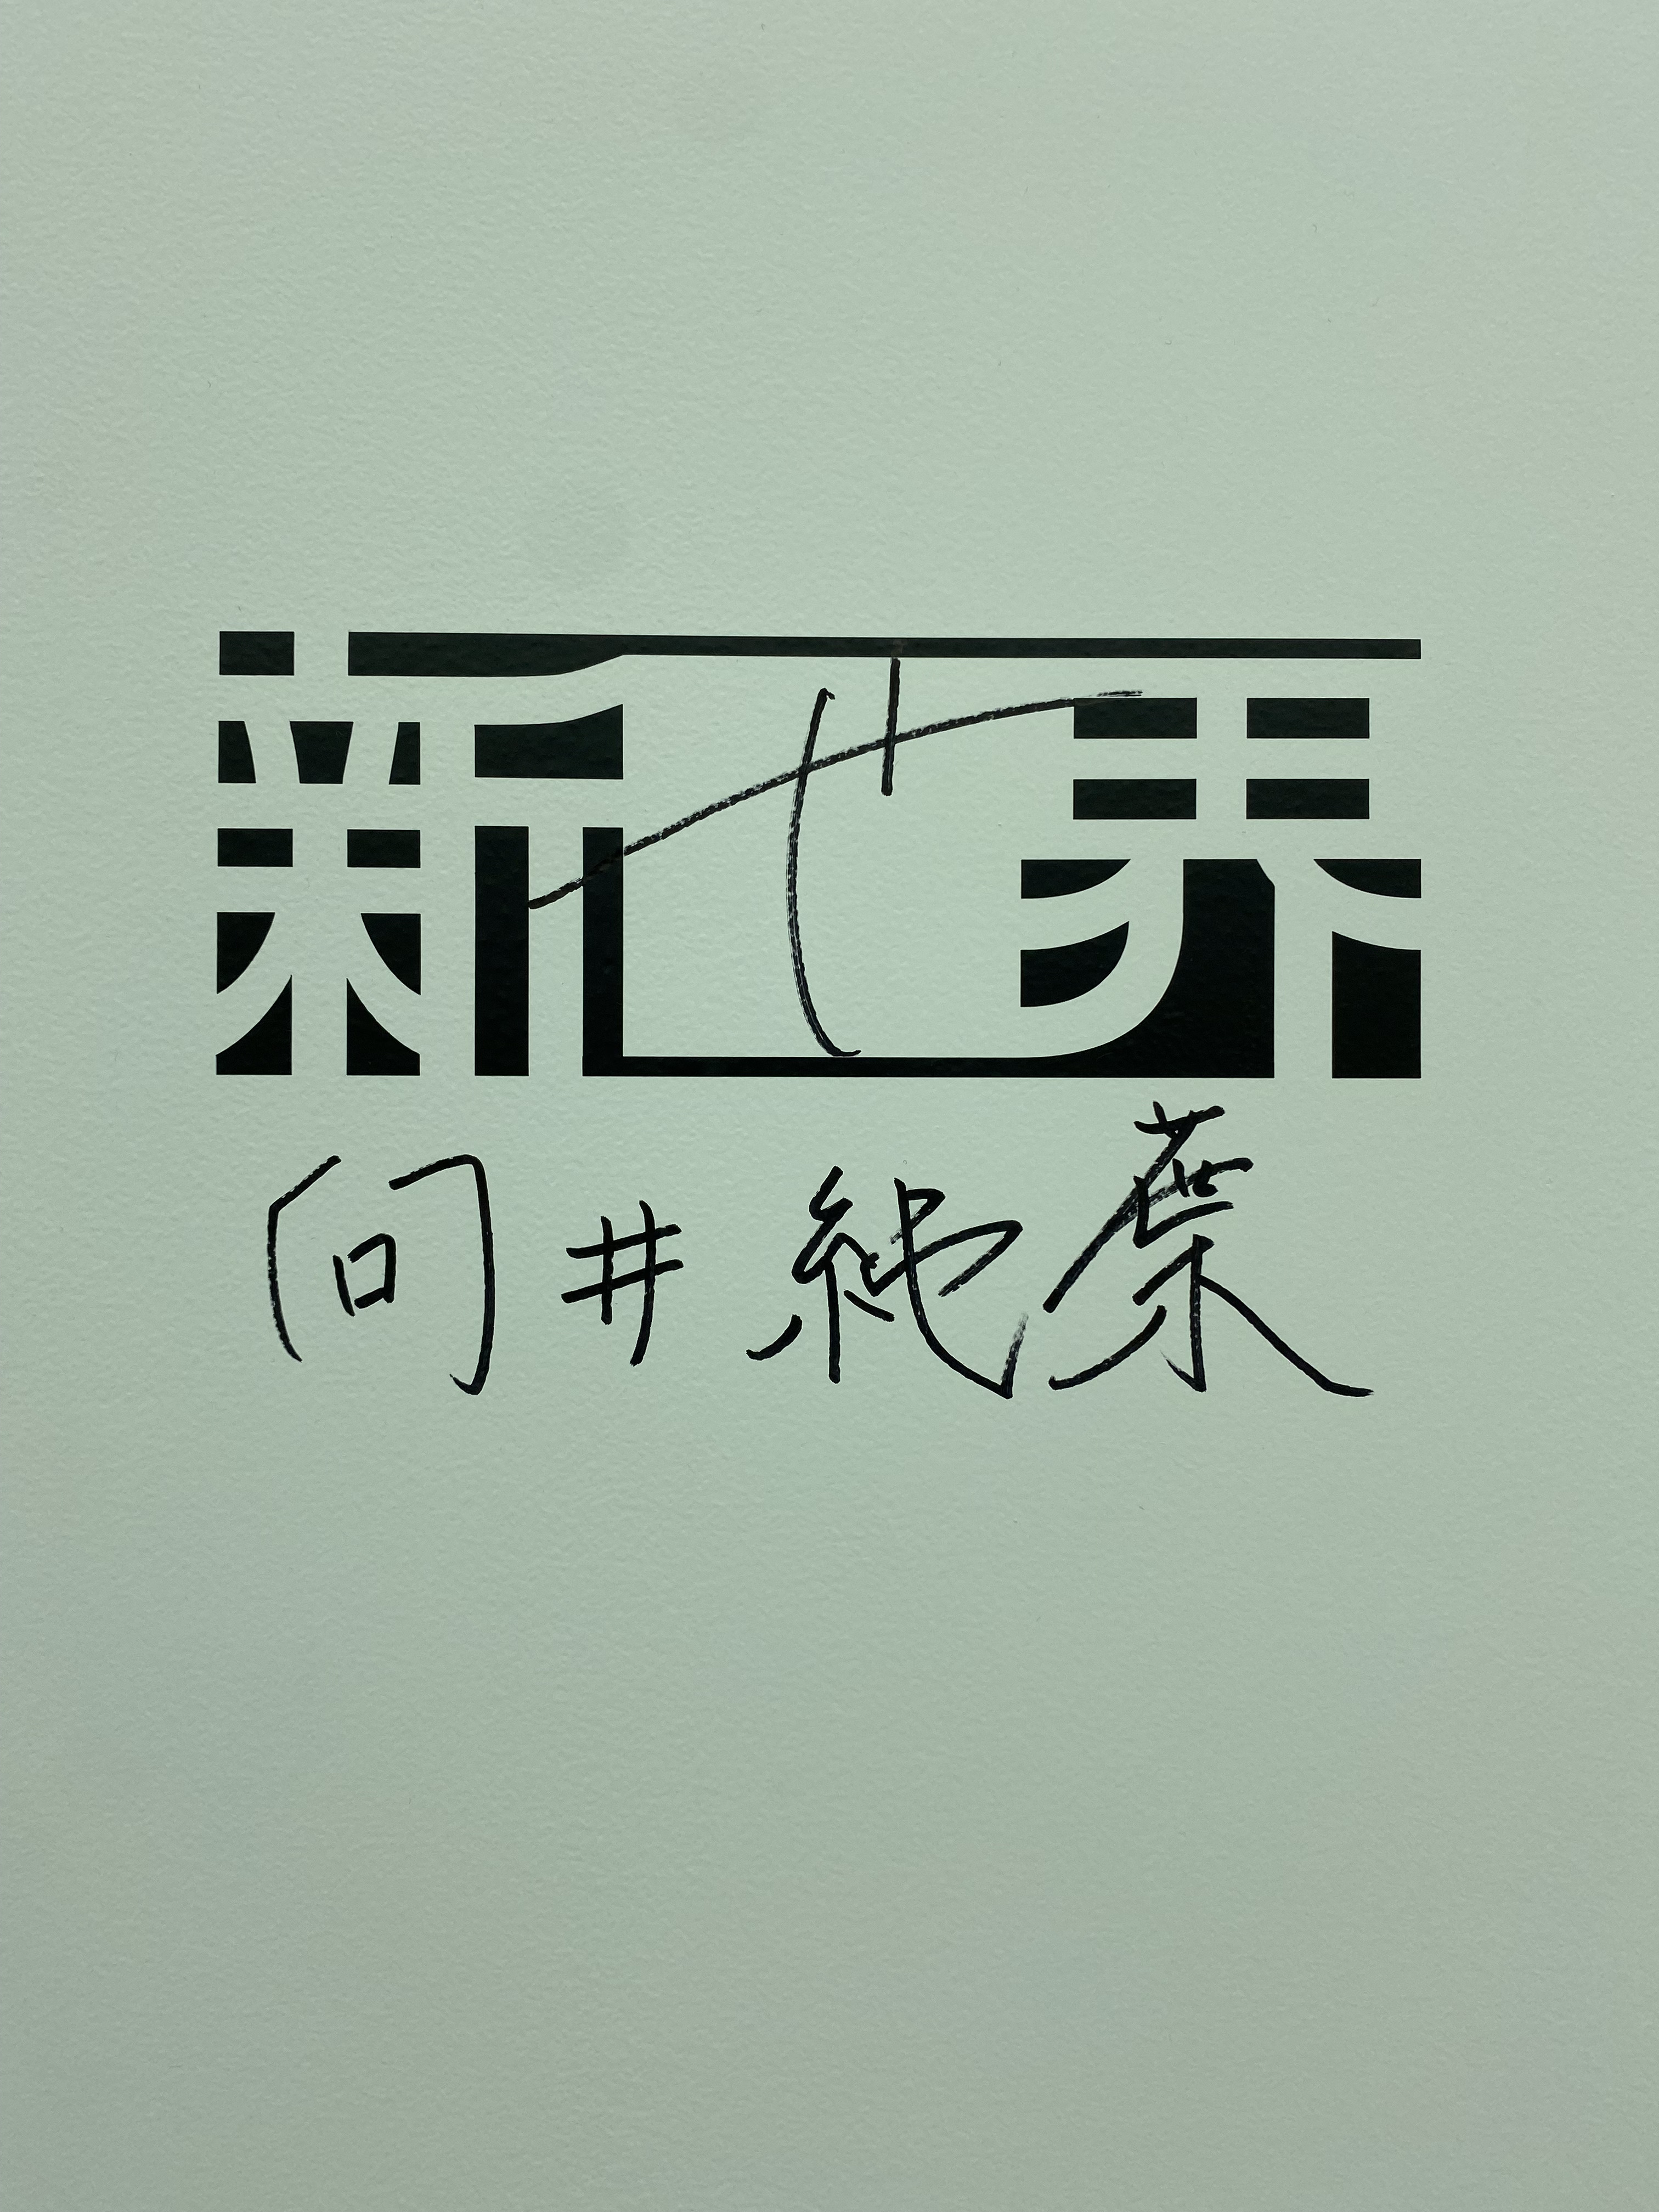 新せ界
向井純葉